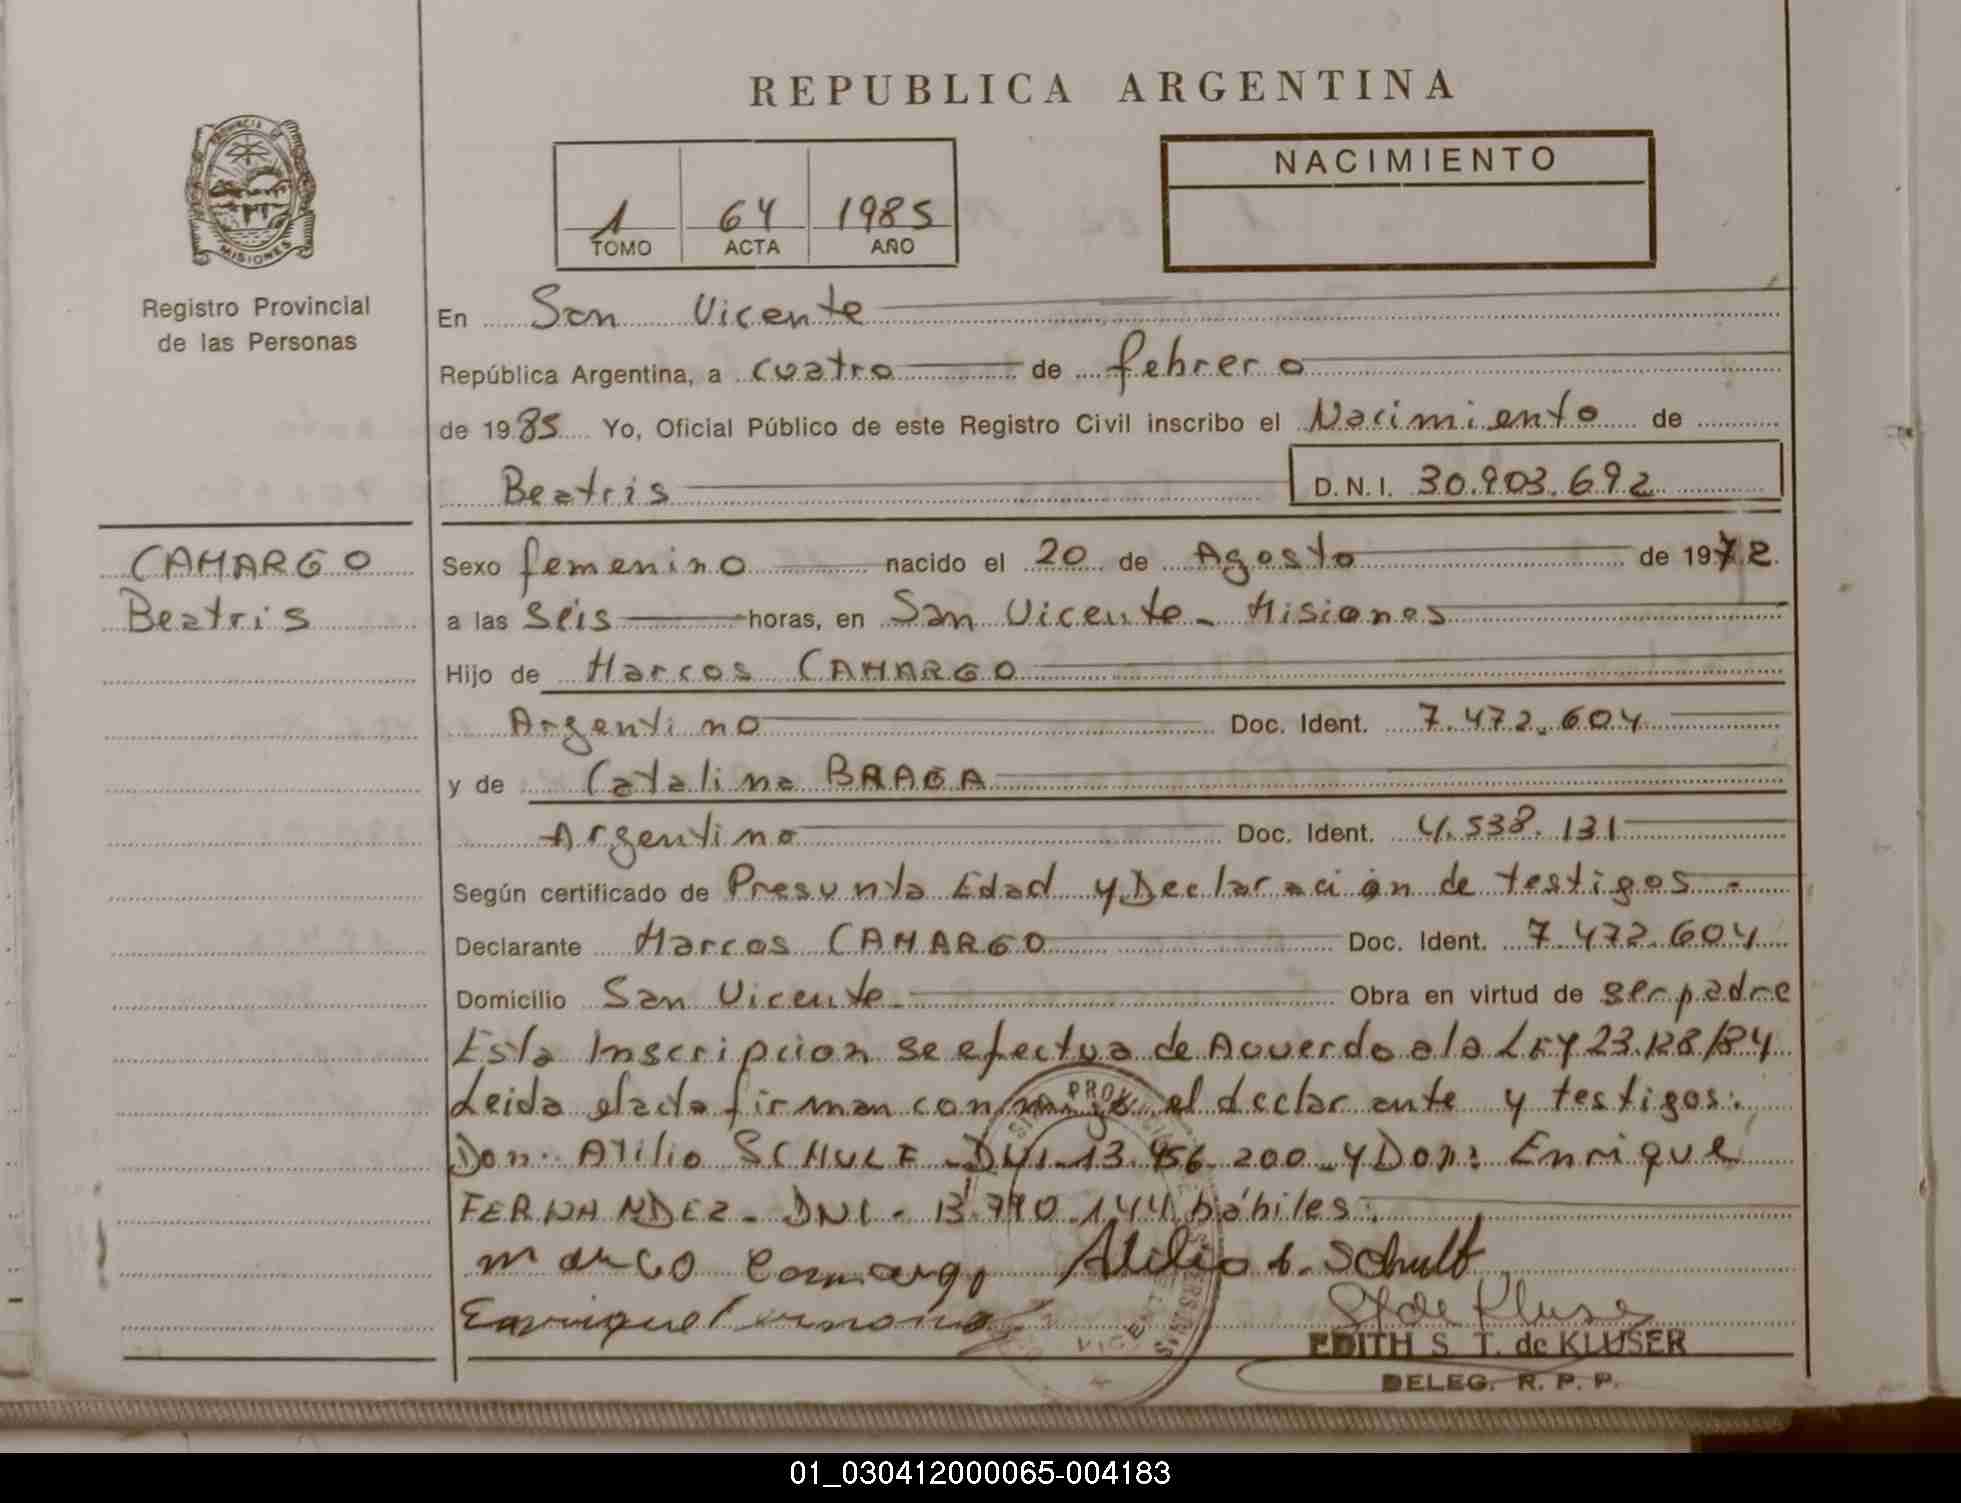 REPUBLICA ARGENTINA
PROVINCIA DE
MISIONES
Registro Provincial
de las Personas
1 64 1985
TOMO ACTA AÑO
NACIMIENTO
En San Vicente
República Argentina, a cuatro de febrero
de 1985 Yo, Oficial Público de este Registro Civil inscribo el Nacimiento de
Beatris D.N.I. 30.903.692
CAMARGO
Beatris
Sexo femenino nacido el 20 de Agosto de 1972.
a las Seis horas, en San Vicente - Misiones
Hijo de Marcos CAMARGO
Argentino Doc. Ident. 7.472.604
y de Catalina BRAGA
Argentina Doc. Ident. 4.538.131
Según certificado de Presunta Edad y Declaración de testigos -
Declarante Marcos CAMARGO Doc. Ident. 7.472.604
Domicilio San Vicente - Obra en virtud de ser padre
Esta Inscripcion se efectua de Acuerdo a la LEY 23.128/84
Leida el acta firman conmigo el declarante y testigos:
Don: Atilio SCHULT - DNI - 13.456.200 - y Don: Enrique
FERNANDEZ - DNI - 13.770.144 hábiles.
marco Camargo Atilio S. Schult
Enrique Fernandez
EDITH S. T. de KLUSER
DELEG. R. P. P.
01_030412000065-004183